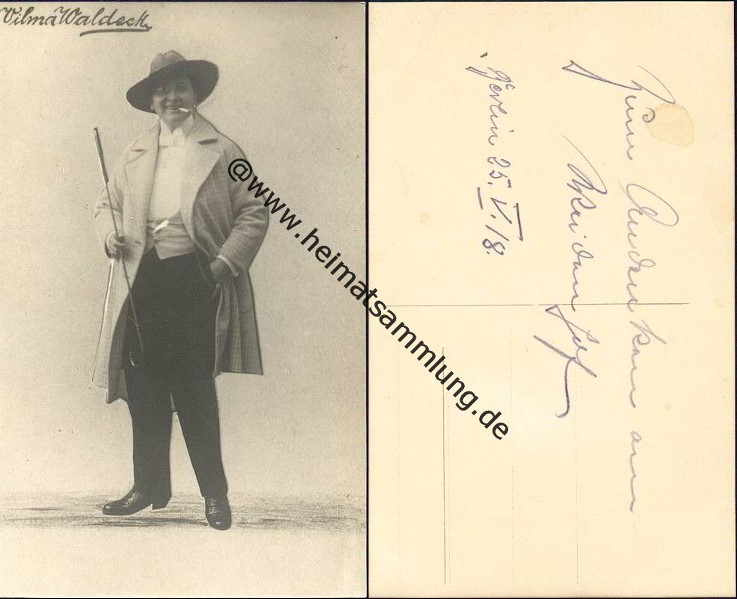 Vilma Waldeck
@www.heimatsammlung.de
Zum Andenken am
Weidenhof
Berlin 25. V. 18.